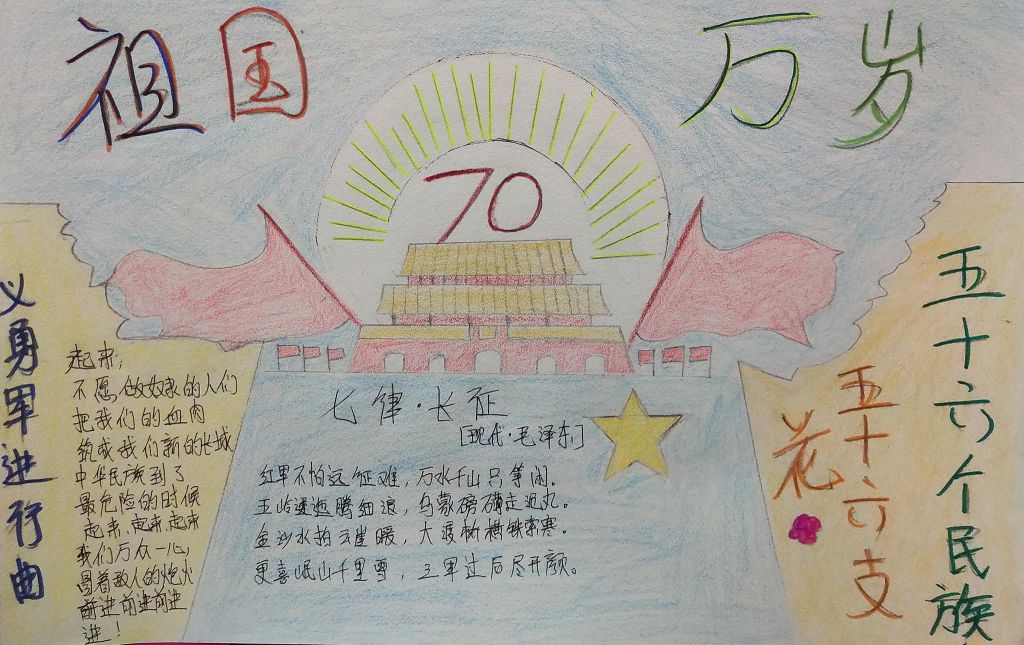 祖国 万岁
70
义勇军进行曲
起来,
不愿做奴隶的人们
把我们的血肉
筑成我们新的长城
中华民族到了
最危险的时候
起来,起来,起来
我们万众一心,
冒着敌人的炮火
前进前进前进
进!
七律·长征
[现代·毛泽东]
红军不怕远征难,万水千山只等闲。
五岭逶迤腾细浪,乌蒙磅礴走泥丸。
金沙水拍云崖暖,大渡桥横铁索寒。
更喜岷山千里雪,三军过后尽开颜。
五十六支
花
五十六个民族